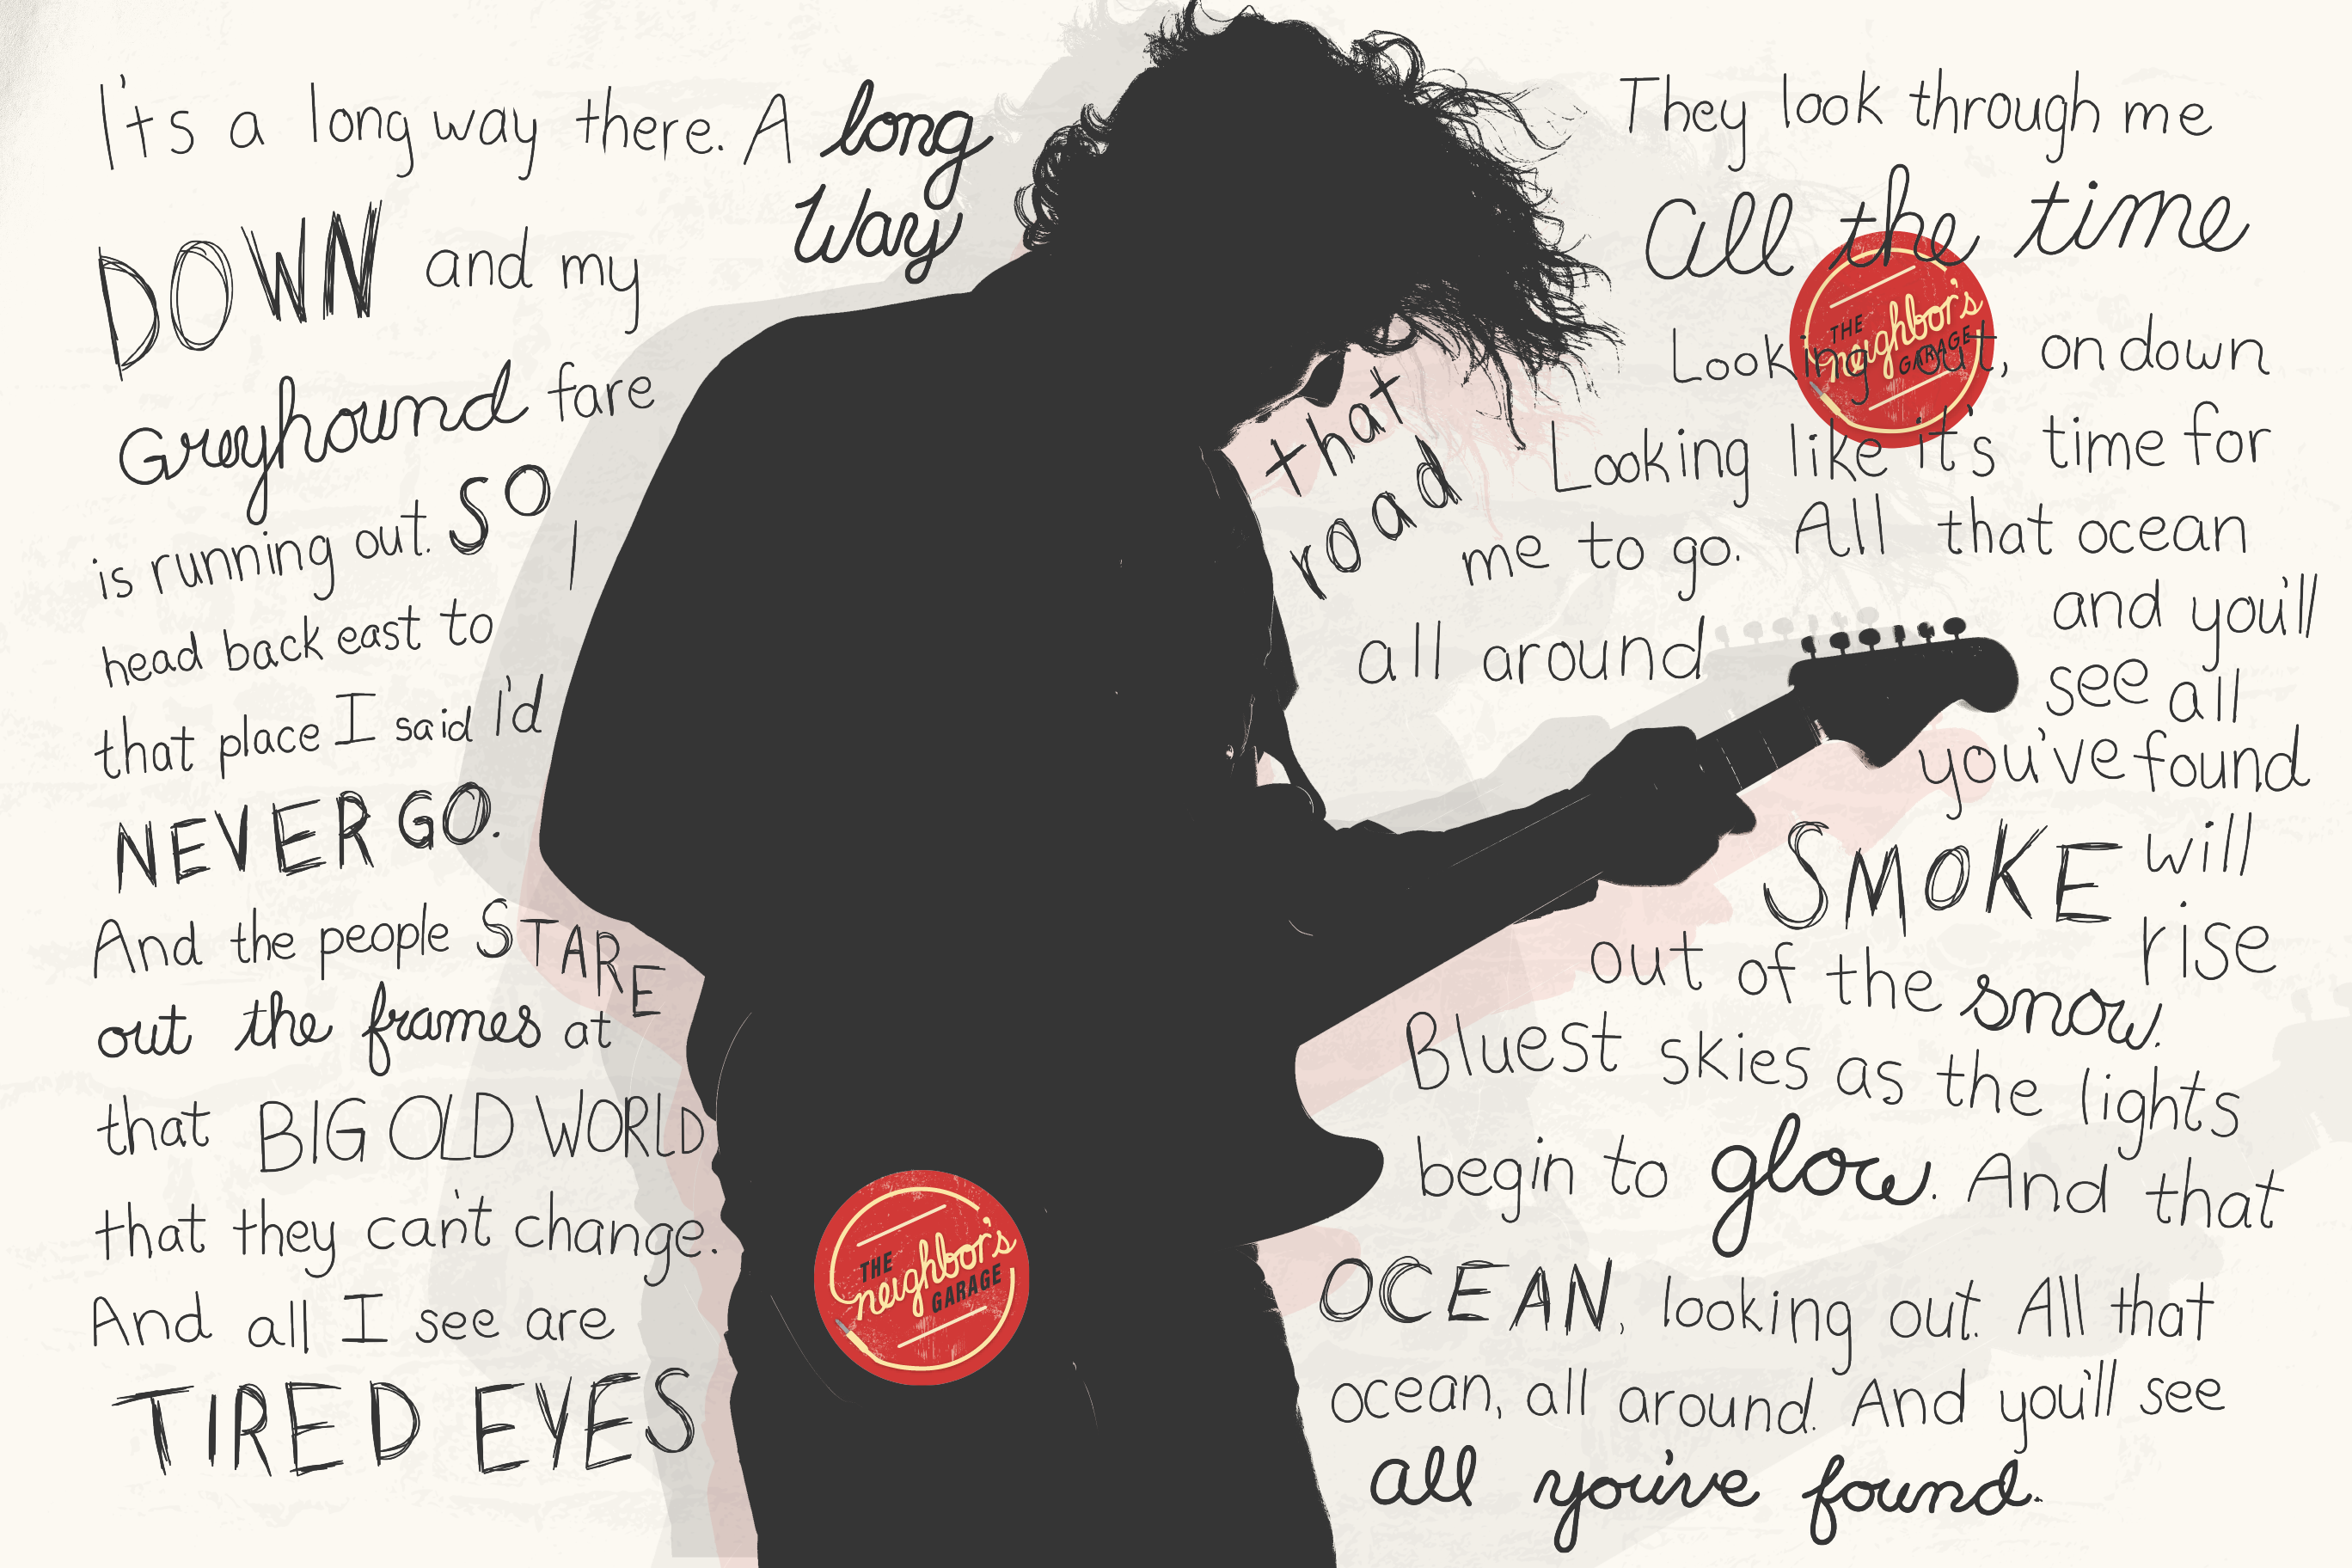 It's a long way there. A long
Way
DOWN and my
Greyhound fare
is running out. SO,
I
head back east to
that place I said I'd
NEVER GO.
And the people STARE
out the frames at
that BIG OLD WORLD
that they can't change.
And all I see are
TIRED EYES
They look through me
all the time
Looking out, on down
that
road
Looking like it's time for
me to go. All that ocean
all around
and you'll
see all
you've found
SMOKE will
rise
out of the snow.
Bluest skies as the lights
begin to glow. And that
OCEAN, looking out. All that
ocean, all around. And you'll see
all you've found.
THE
neighbor's
GARAGE
THE
neighbor's
GARAGE